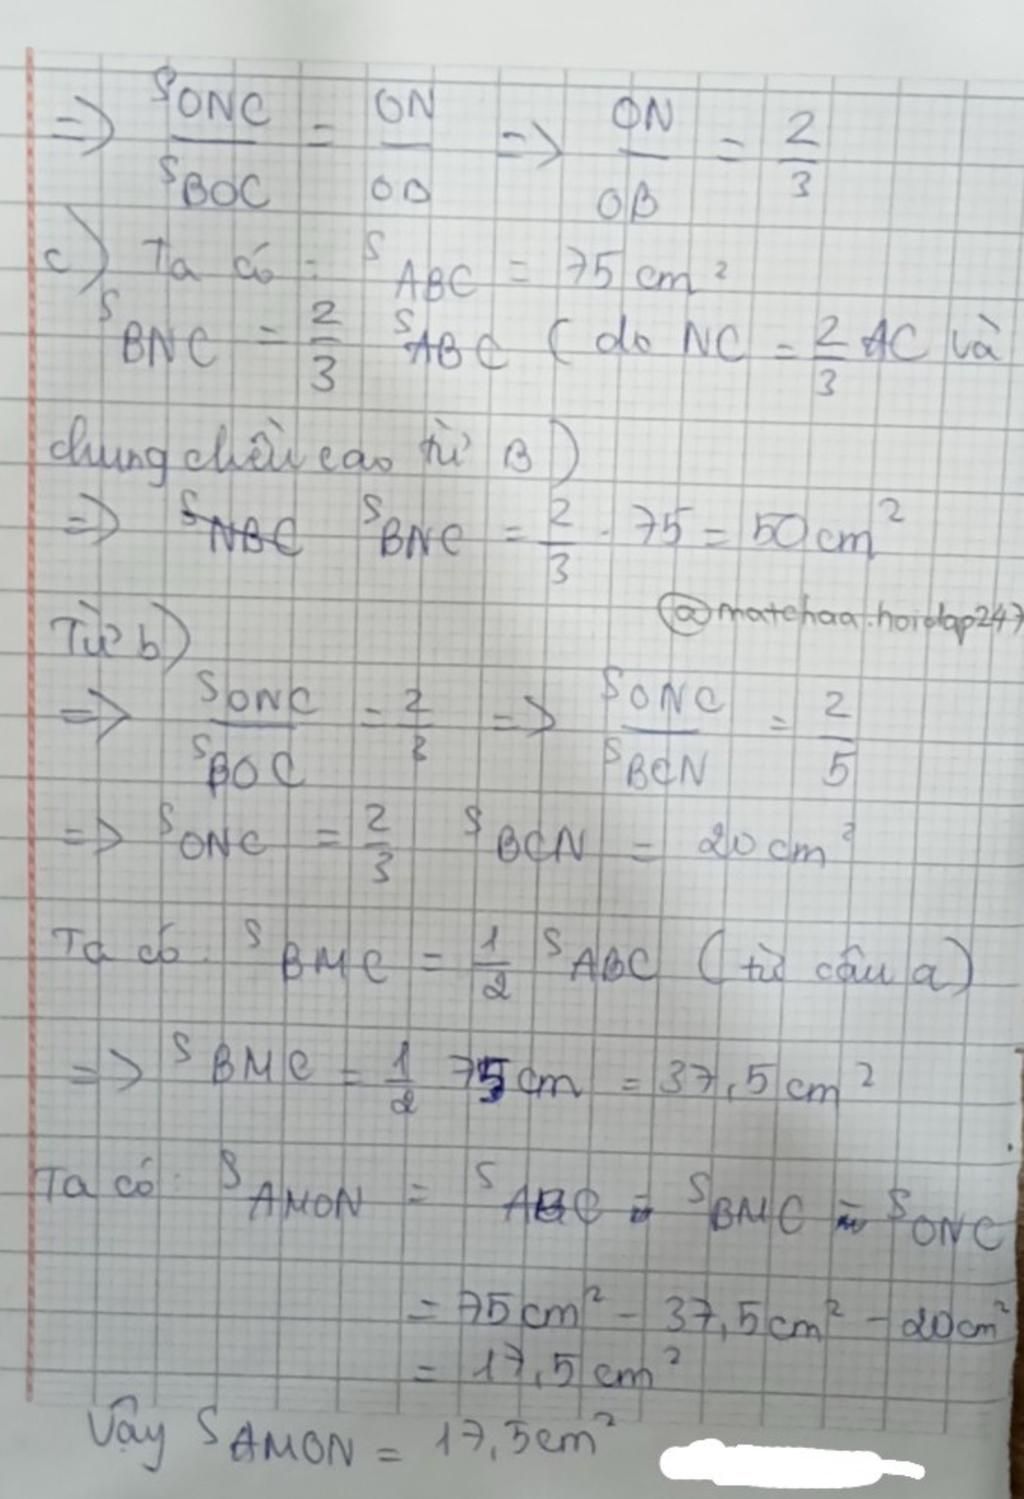 => S ONC / S BOC = ON / OB => ON / OB = 2/3
c) Ta có: S ABC = 75 cm²
S BNC = 2/3 S ABC (do NC = 2/3 AC và
chung chiều cao từ B)
=> S NBC S BNC = 2/3 . 75 = 50 cm²
@matchaa.hoidap247
Từ b)
=> S ONC / S BOC = 2/3 => S ONC / S BCN = 2/5
=> S ONC = 2/3 S BCN = 20 cm²
Ta có: S BMC = 1/2 S ABC (từ câu a)
=> S BMC = 1/2 75 cm = 37,5 cm²
Ta có: S AMON = S ABC - S BMC - S ONC
= 75 cm² - 37,5 cm² - 20 cm²
= 17,5 cm²
Vậy S AMON = 17,5 cm²